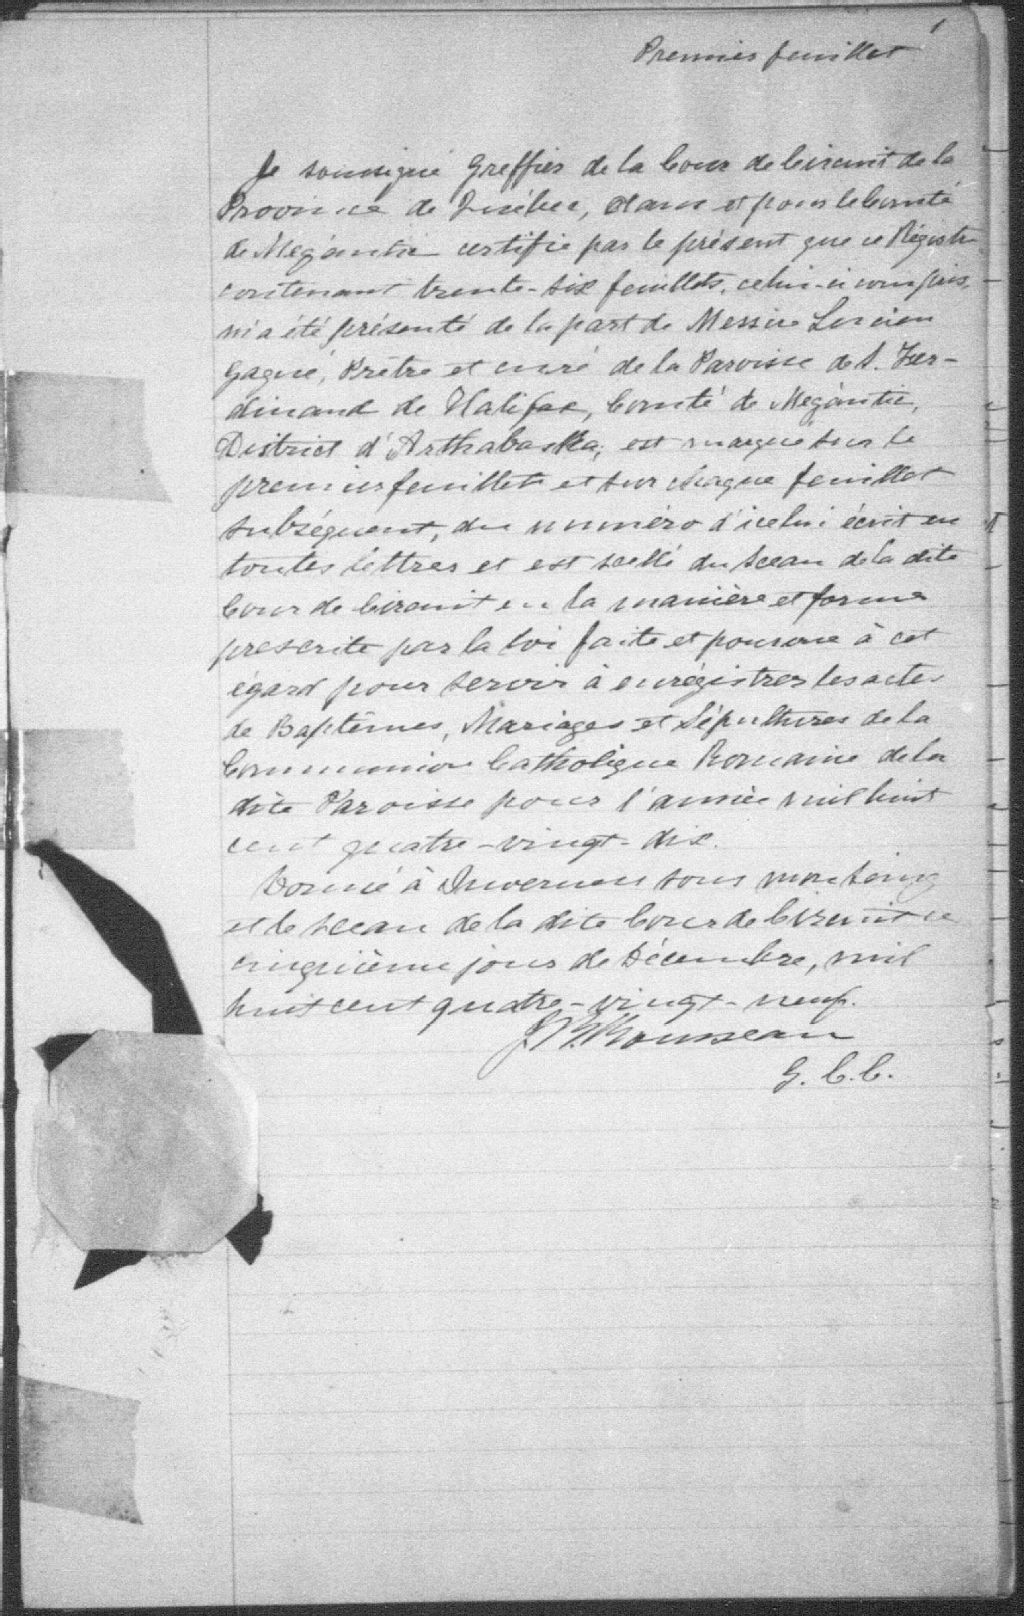 1
Premier feuillet
Je soussigné Greffier de la Cour de Circuit de la
Province de Québec, dans et pour le Comté
de Mégantic certifie par le présent que ce Régistre
contenant trente-six feuillets, celui-ci compris,
m'a été présenté de la part de Messire Lucien
Gagné, Prêtre et curé de la Paroisse de S. Fer-
dinand de Halifax, Comté de Mégantic,
District d'Arthabaska, est marqué sur le
premier feuillet et sur chaque feuillet
subséquent, du numéro d'icelui écrit en
toutes lettres et est scellé du sceau de la dite
Cour de Circuit en la manière et forme
prescrite par la loi faite et pourvue à cet
égard pour servir à enrégistrer les actes
de Baptêmes, Mariages et Sépultures de la
Communion Catholique Romaine de la
dite Paroisse pour l'année mil huit
cent quatre-vingt-dix.
Donné à Inverness sous mon seing
et le sceau de la dite Cour de Circuit ce
cinquième jour de Décembre, mil
huit cent quatre-vingt-neuf.
Rousseau
G. C. C.